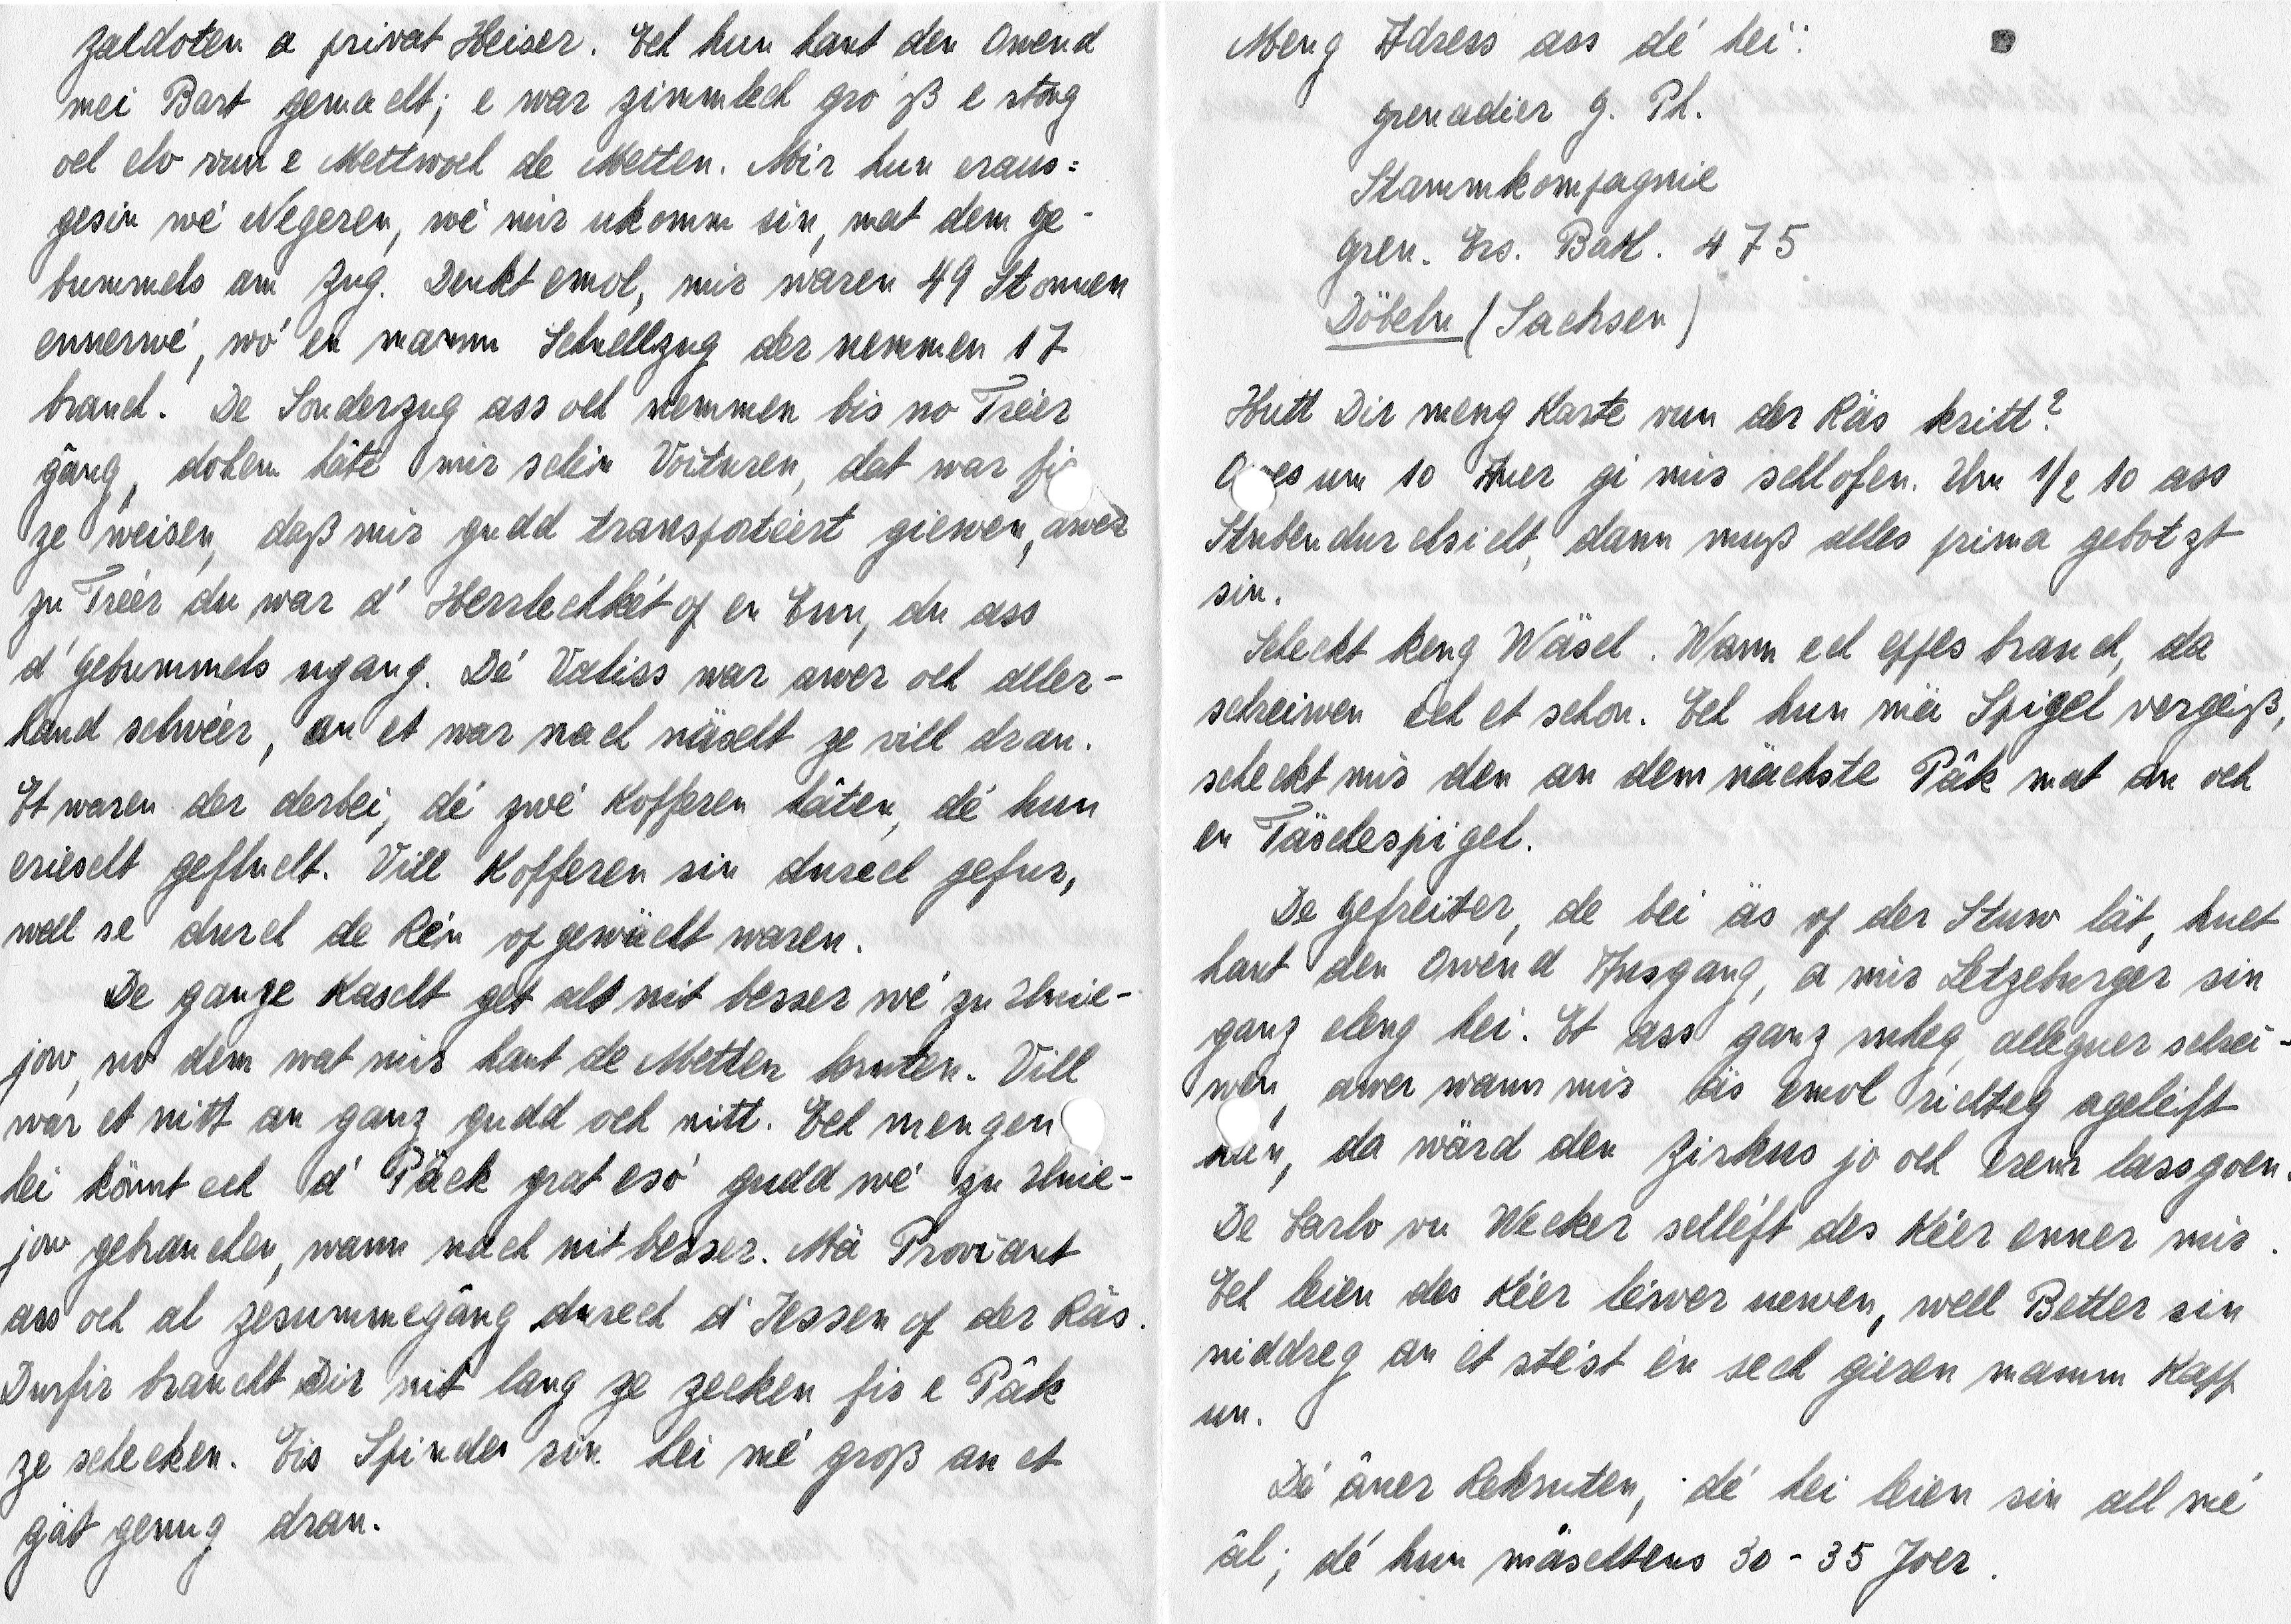 Zaldoten a privat Heiser. Ech hun haut den Owend
mei Bart gemacht; e war zimmlech gro ß e stóng
och elo vun e Mettwoch de Metten. Mir hun eraus=
gesin wé Negeren, wé mir ukomm sin, mat dem Ge-
bummels am Zug. Denkt emol, mir waren 49 Stonnen
ennerwé, wó en mamm Schnellzug der nemmen 17
brauch. De Sonderzug ass och nemmen bis no Tréier
gâng, dohem hâte mir schéin Voituren, dat war fir
ze weisen, daß mir gudd transportéiert giewen, awer
zu Tréier du war d' Herrlechkét op en Enn, du ass
d' Gebummels ugang. Dé Valiss war awer och aller-
hand schwéier, an et war nach näscht ze vill dran.
Et waren der derbei, dé zwé Kofferen hâten, dé hun
eriescht geflucht. Vill Kofferen sin durech gefur,
well se durch de Rén opgewächt waren.
De ganze Kascht get als nit besser wé zu Gnie-
jow, no dem wat mir haut de Metten hruten. Vill
war et nitt an ganz gudd och nitt. Ech mengen
hei könnt ech d' Päck grat esó gudd wé zu Gnie-
jow gebrauchen, wann nach nit besser. Mä Proviant
ass och al zesummegâng durech d' Iessen op der Räs.
Durfir braucht Dir nit lang ze zecken fir e Pâk
ze schecken. Eis Spinder sin hei mé groß an et
gät genug dran.
Meng Adress ass dé hei:
Grenadier G. Ph.
Stammkompagnie
Gren. Ers. Batl. 475
Döbeln (Sachsen)
Hutt Dir meng Karte vun der Räs kritt?
um 10 Auer gi mir schlofen. Um 1/2 10 ass
Stubendurchsicht, dann muß alles prima gebotzt
sin.
Scheckt keng Wäsch. Wann ech eppes brauch, da
schreiwen ech et schon. Ech hun mäi Spigel vergéiß,
scheckt mir den an dem nächste Pâk mat an och
en Täschespigel.
De Gefreiter, de bei äs op der Stuw lät, huet
haut den Owend Ausgang, a mir Letzeburger sin
ganz eleng hei. Et ass ganz roheg, alleguer schrei-
wen, awer wann mir äs emol richteg ageléift
hun, da wärd den Zirkus jo och erem lassgoen.
De Carlo vu Wecker schléft des Kéier enner mir.
Ech leien des Kéier léiwer uewen, well Better sin
niddreg an et stéist én sech gieren mamm Kapp
un.
Dé âner Rekruten, dé hei leien sin all mé
âl; dé hun mäschtens 30 - 35 Joer.